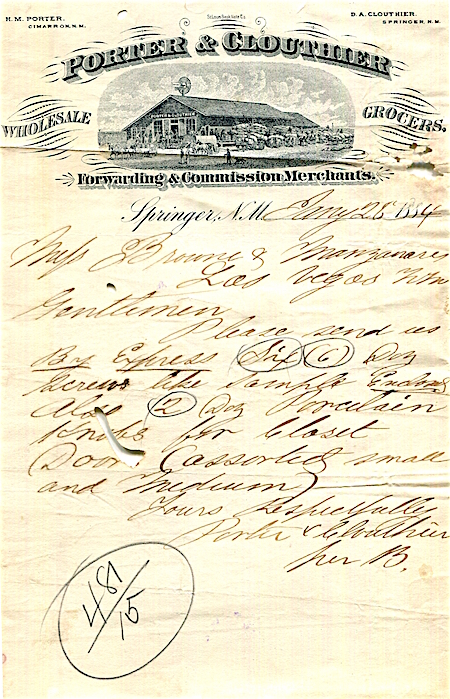 H. M. PORTER,
CIMARRON, N.M.
D. A. CLOUTHIER.
SPRINGER, N.M.
PORTER & CLOUTHIER
PORTER & CLOUTHIER
WHOLESALE
GROCERS.
Forwarding & Commission Merchants.
Springer, N.M. Jany 28 1884
Mess Browne & Manzanares
Las Vegas NM
Gentlemen
Please send us
By Express Six (6) Doz
Screws like Sample
Also 2 Doz Porcelain
Knobs for Closet
Doors (assorted small
and Medium)
Yours Respectfully
Porter & Clouthier
per B.
481/15